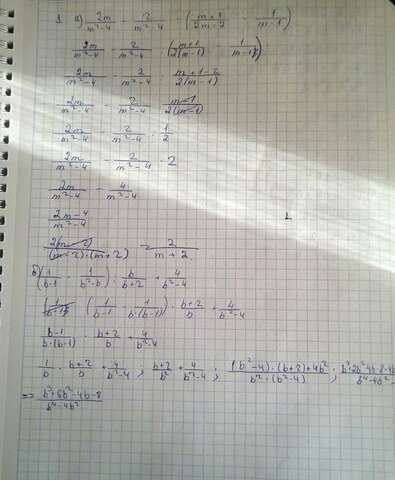 1 а) 2m/(m²-4) - 2/(m²-4) : ((m+1)/(2m-2) - 1/(m-1))
2m/(m²-4) - 2/(m²-4) : ((m+1)/(2(m-1)) - 1/(m-1))
2m/(m²-4) - 2/(m²-4) : (m+1-2)/(2(m-1))
2m/(m²-4) - 2/(m²-4) : (m-1)/(2(m-1))
2m/(m²-4) - 2/(m²-4) : 1/2
2m/(m²-4) - 2/(m²-4) · 2
2m/(m²-4) - 4/(m²-4)
(2m-4)/(m²-4)
2(m-2)/((m-2)·(m+2)) = 2/(m+2)
б) (1/(b-1) - 1/(b²-b)) : b/(b+2) + 4/(b²-4)
(1/(b-1) - 1/(b·(b-1))) · (b+2)/b + 4/(b²-4)
(b-1)/(b·(b-1)) · (b+2)/b + 4/(b²-4)
1/b · (b+2)/b + 4/(b²-4) ; (b+2)/b² + 4/(b²-4) ; ((b²-4)·(b+2)+4b²)/(b²·(b²-4)) ;
=> (b³+6b²-4b-8)/(b⁴-4b²)